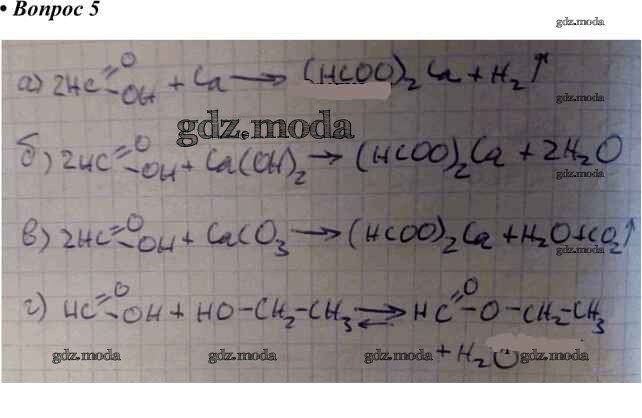 • Вопрос 5
gdz.moda
а) 2HC=O-OH + Ca → (HCOO)₂Ca + H₂↑
gdz.moda
gdz.moda
б) 2HC=O-OH + Ca(OH)₂ → (HCOO)₂Ca + 2H₂O
gdz.moda
в) 2HC=O-OH + CaCO₃ → (HCOO)₂Ca + H₂O + CO₂↑
gdz.moda
г) HC=O-OH + HO-CH₂-CH₃ ⇄ HC=O-O-CH₂-CH₃
+ H₂O
gdz.moda gdz.moda gdz.moda gdz.moda